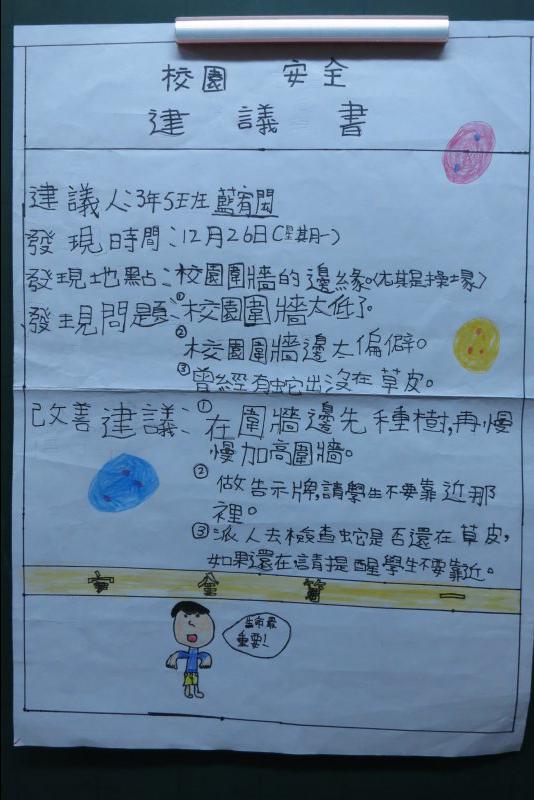 校園 安全
建議書
建議人:3年5班 藍宥閎
發現時間:12月26日(星期一)
發現地點:校園圍牆的邊緣。(尤其是操場)
發現問題:①校園圍牆太低了。
②校園圍牆邊太偏僻。
③曾經有蛇出沒在草皮。
改善建議:①在圍牆邊先種樹,再慢
慢加高圍牆。
②做告示牌,請學生不要靠近那
裡。
③派人去檢查蛇是否還在草皮,
如果還在請提醒學生不要靠近。
安全第一
重要!